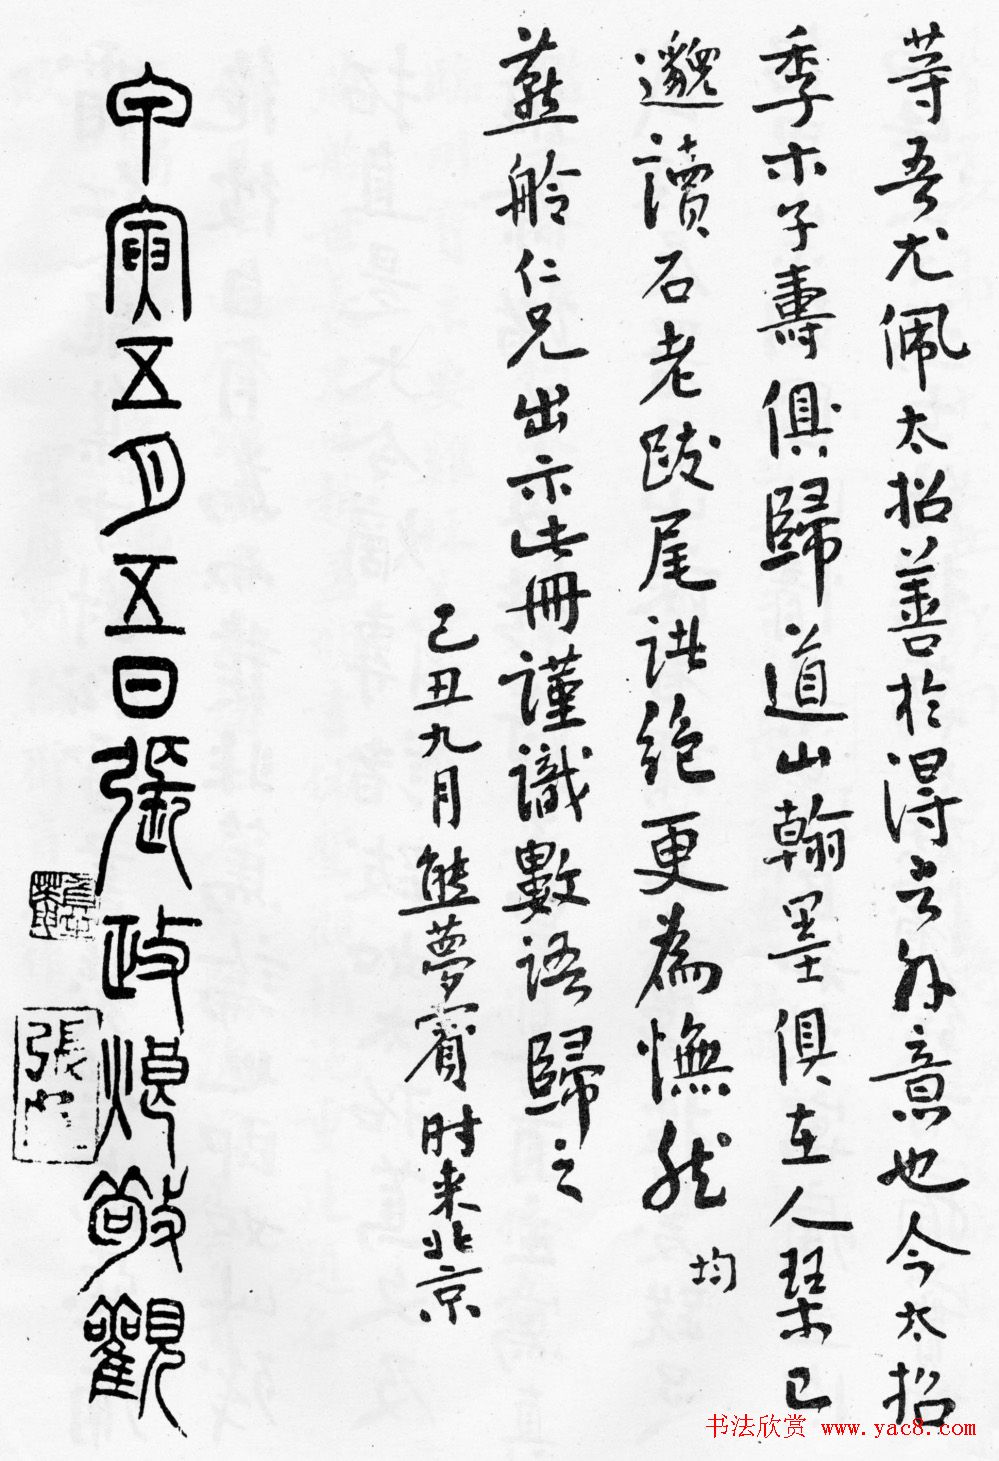 等吾尤佩太招善於得言外意也今太招
季木子壽俱歸道山翰墨俱在人琴已
邈讀石老跋尾絕更為憮然 均
燕舲仁兄出示此冊謹識數語歸之
己丑九月熊夢賓时来北京
甲寅五月五日張政烺敬觀
張
书法欣赏 www.yac8.com